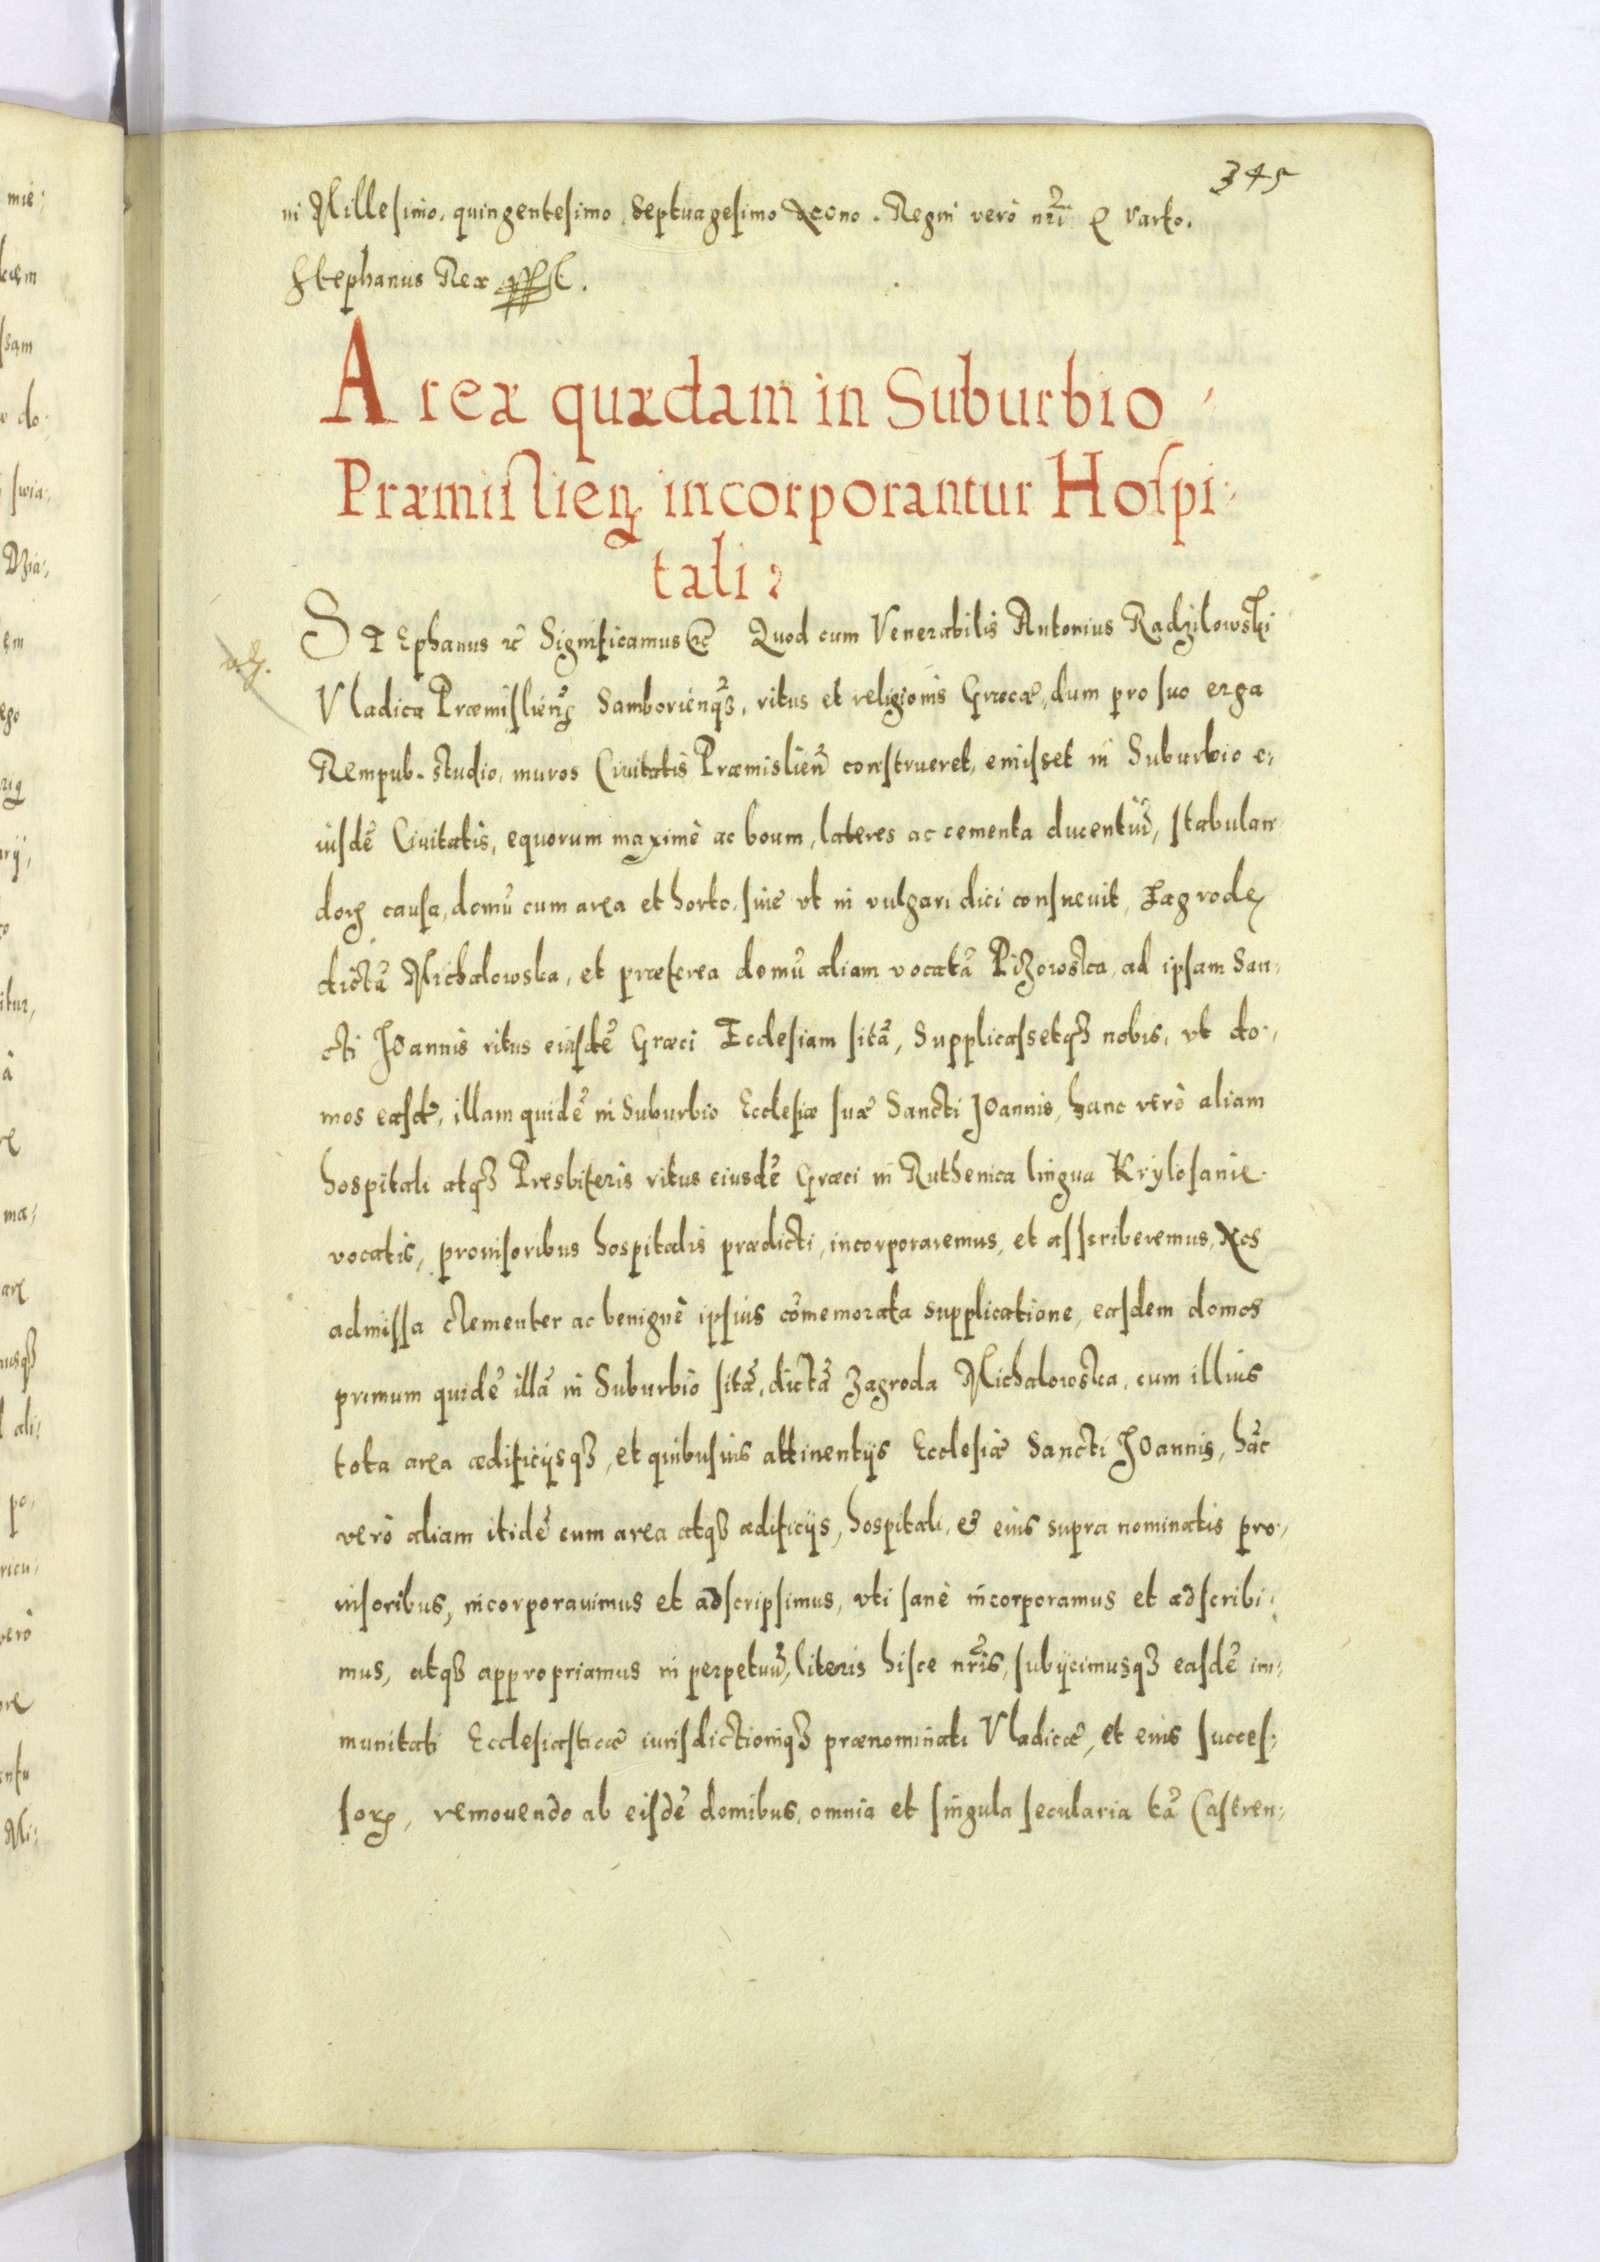 345
ni Millesimo, quingentesimo, Septuagesimo Nono. Regni verò nr̃i Qvarto.
Stephanus Rex sspst.
Areæ quædam in Suburbio
Præmislien̄. incorporantur Hospi:
tali:
STEphanus etc̃ Significamus etc̃ Quod cum Venerabilis Antonius Radzilowski
Vladica Præmislien̄. Samborien̄qȝ, ritus et religionis Græcæ, dum pro suo erga
Rempub. studio, muros Ciuitatis Præmislien̄ construeret, emisset in Suburbio e:
iusdē Ciuitatis, equorum maximè ac boum, lateres ac cementa ducentiū, stabulan:
dorꝝ causa, domū cum area et horto, siue vt in vulgari dici consueuit, Zagrodę
dictā Michalowska, et præterea domū aliam vocatā Pizowska, ad ipsam San:
cti Joannis ritus eiusdē Græci Ecclesiam sitā, Supplicassetqȝ nobis, vt do:
mos easdē, illam quidē in Suburbio Ecclesiæ suæ Sancti Joannis, hanc verò aliam
hospitali atqȝ Presbiteris ritus eiusdē Græci in Ruthenica lingua Krylosanie
vocatis, prouisoribus hospitalis prædicti, incorporaremus, et asscriberemus, Nos
admissa clementer ac benignè ipsius cōmemorata supplicatione, easdem domos
primum quidē illā in Suburbio sitā, dictā Zagroda Michalowska, cum illius
tota area ædificijsqȝ, et quibusuis attinentijs Ecclesiæ Sancti Joannis, hāc
verò aliam itidē cum area atqȝ ædificijs, hospitali, et eius supra nominatis pro:
uisoribus, incorporauimus et adscripsimus, vti sanè incorporamus et adscribi:
mus, atqȝ appropriamus in perpetuū, literis hisce nr̃is, subijcimusqȝ easdē im:
munitati Ecclesiasticæ iurisdictioniqȝ prænominati Vladicæ, et eius succes:
sorꝝ, remouendo ab eisdē domibus, omnia et singula secularia tā Castren: